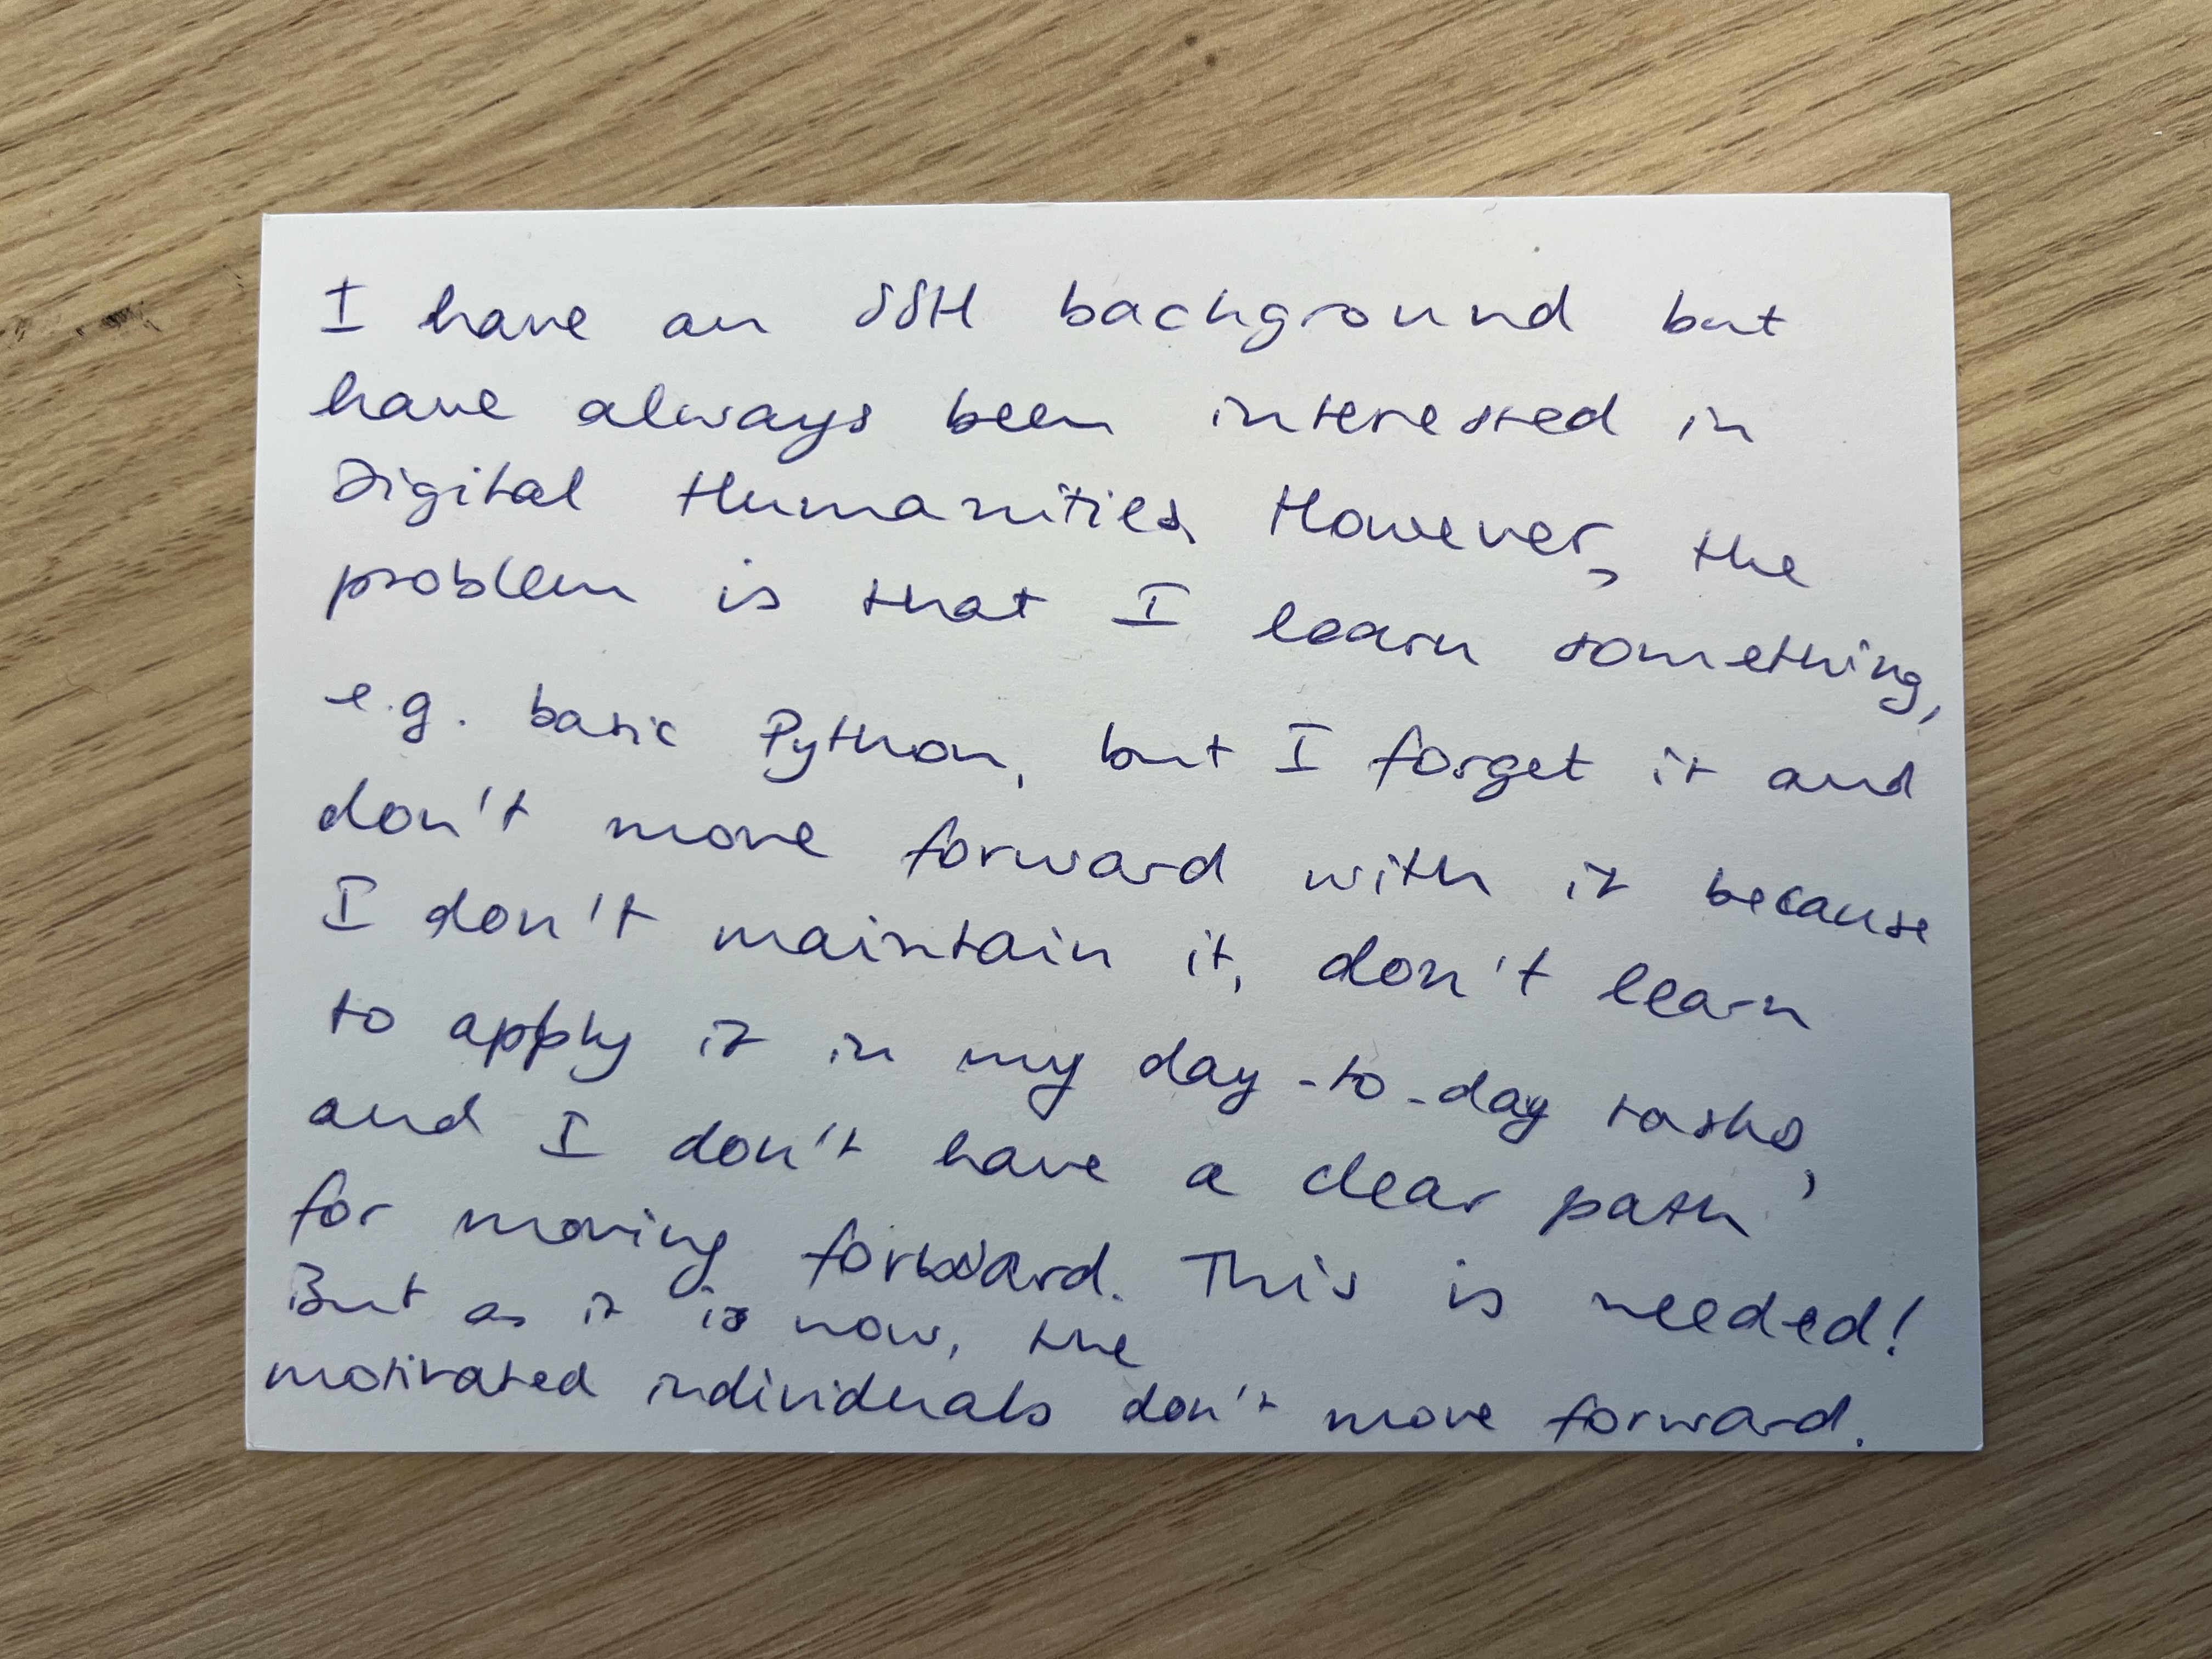 I have an SSH background but
have always been interested in
Digital Humanities. However, the
problem is that I learn something,
e.g. basic Python, but I forget it and
don't move forward with it because
I don't maintain it, don't learn
to apply it in my day-to-day tasks,
and I don't have a clear path
for moving forward. This is needed!
But as it is now, the
motivated individuals don't move forward.